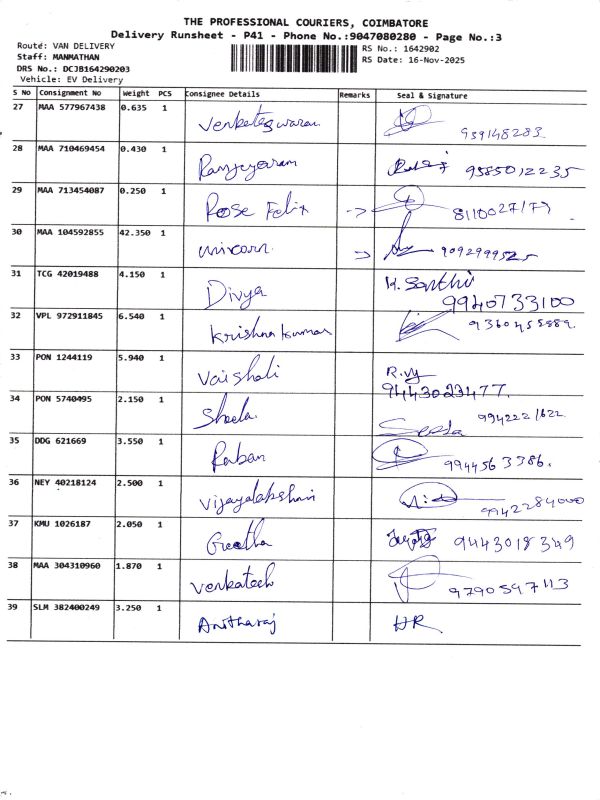 THE PROFESSIONAL COURIERS, COIMBATORE
Delivery Runsheet - P41 - Phone No.:9047080280 - Page No.:3
Route: VAN DELIVERY
RS No.: 1642902
Staff: MANMATHAN
RS Date: 16-Nov-2025
DRS No.: DCJB164290203
Vehicle: EV Delivery
S No Consignment No Weight PCS Consignee Details Remarks Seal & Signature
27 MAA 577967438 0.635 1 Venkateswaran 939148283
28 MAA 710469454 0.430 1 9585012235
29 MAA 713454087 0.250 1 Rose Felix -> 8110027177
30 MAA 104592855 42.350 1 unicorn -> 9092999525
31 TCG 42019488 4.150 1 Divya K. Santhi 9940733100
32 VPL 972911845 6.540 1 Krishna kumar 9360455889
33 PON 1244119 5.940 1 Vaishali R. 9443023477.
34 PON 5740495 2.150 1 Sheela. 9942221622
35 DDG 621669 3.550 1 Raban 9944563386.
36 NEY 40218124 2.500 1 Vijayalakshmi 9942284000
37 KMU 1026187 2.050 1 Geetha 9443018349
38 MAA 304310960 1.870 1 Venkatesh 9790597113
39 SLM 382400249 3.250 1 Anitharaj HR